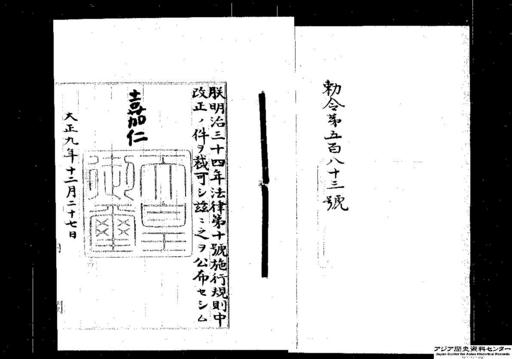 勅令第五百八十三號
朕明治三十四年法律第十號施行規則中
改正ノ件ヲ裁可シ茲ニ之ヲ公布セシム
嘉仁
天皇
御璽
大正九年十二月二十七日
アジア歴史資料センター
Japan Center for Asian Historical Records